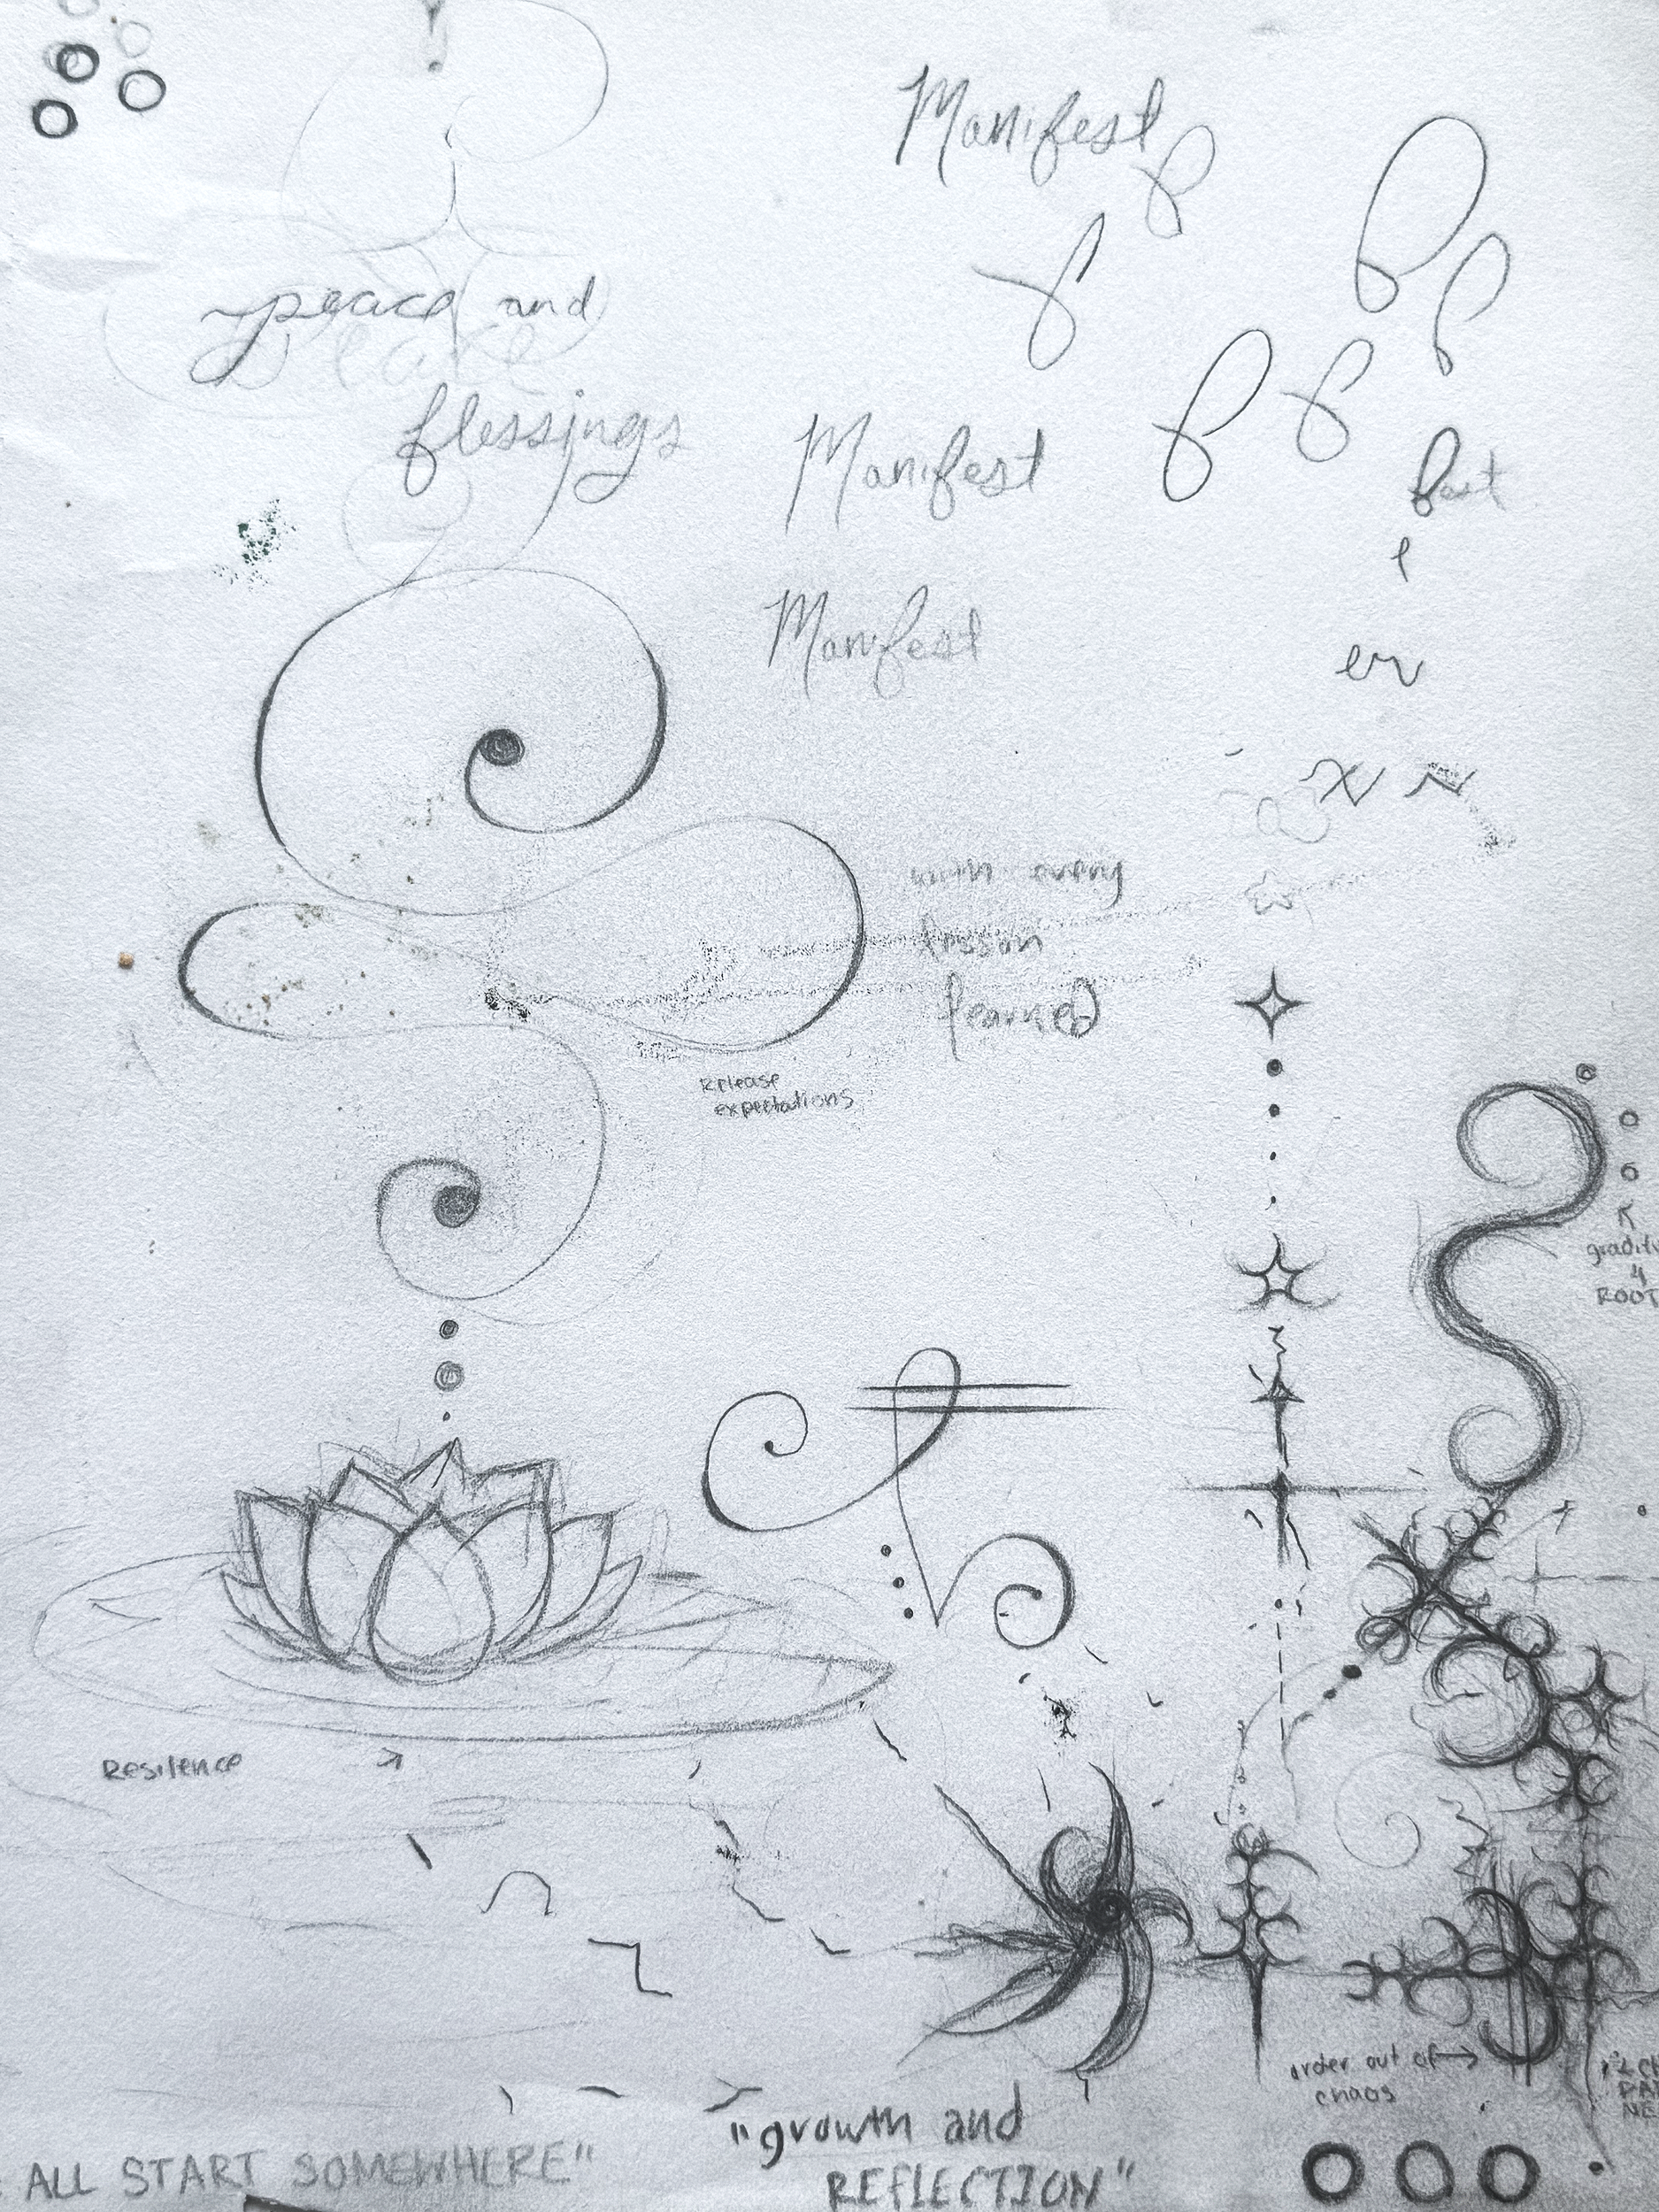 Manifest
peace and
blessings
Manifest
fast
Manifest
er
with every
lesson
learned
Release
expectations
ROOT
Resilence
order out of
chaos
"growth and
REFLECTION"
ALL START SOMEWHERE"